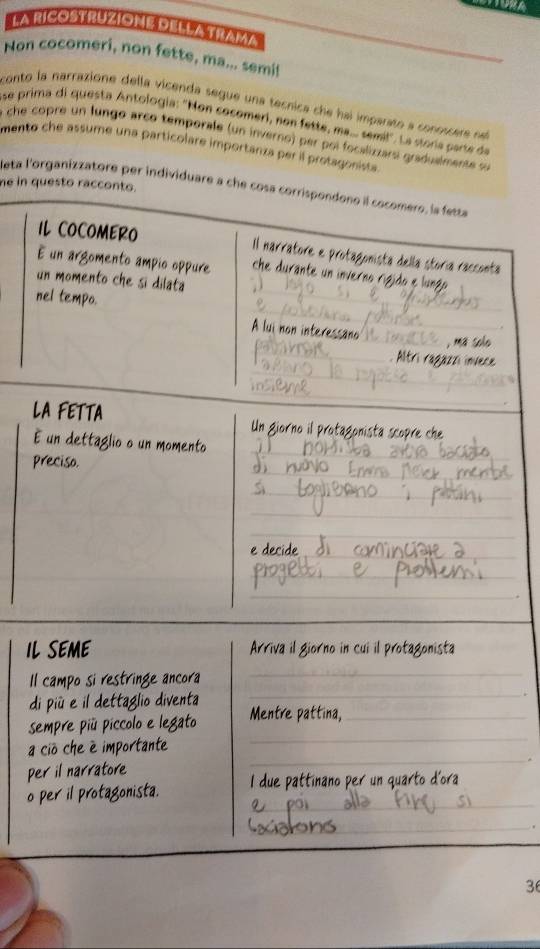 LA RICOSTRUZIONE DELLA TRAMA
Non cocomeri, non fette, ma... semi!
conto la narrazione della vicenda segue una tecnica che hai imparato a conoscere nel
se prima di questa Antologia: "Non cocomeri, non fette, ma... semi!". La storia parte da
che copre un lungo arco temporale (un inverno) per poi focalizzarsi gradualmente su
mento che assume una particolare importanza per il protagonista.
leta l'organizzatore per individuare a che cosa corrispondono il cocomero, la fetta
me in questo racconto.
IL COCOMERO
È un argomento ampio oppure
un momento che si dilata
nel tempo.
Il narratore e protagonista della storia racconta
che durante un inverno rigido e lungo
il lago si è
e
A lui non interessano le , ma solo
pattinare . Altri ragazzi invece
le ragazze e
insieme
LA FETTA
È un dettaglio o un momento
preciso.
Un giorno il protagonista scopre che
il aveva baciato
di nuovo Emma mentre
si toglievano i pattini
e decide di cominciare a
progetti e problemi
IL SEME
Il campo si restringe ancora
di più e il dettaglio diventa
sempre più piccolo e legato
a ciò che è importante
per il narratore
o per il protagonista.
Arriva il giorno in cui il protagonista
Mentre pattina,
I due pattinano per un quarto d'ora
e poi alla fine si
baciarono
36